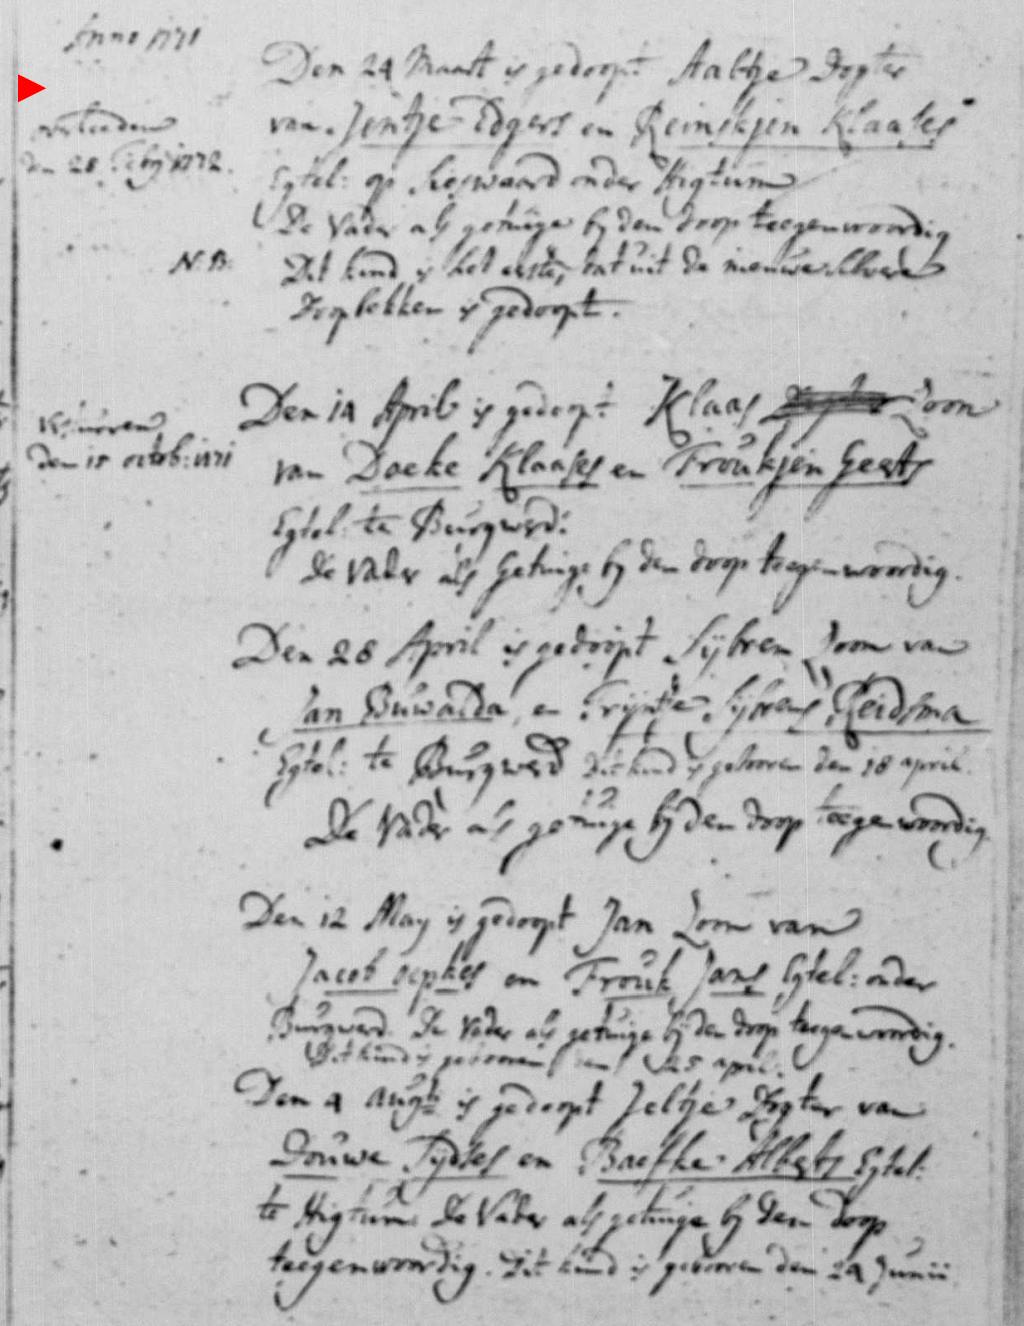 Anno 1771
Den 24 Maart is gedoopt Aaltje Dogter
van Jentje Edgers en Reinskjen Klaases
overleeden
den 28 Febr 1772.
Egtel: op  onder Higtum
De Vader als getuige by den doop teegenwoordig
N.B. Dit kind is het eerste, dat uit de nieuwe silvere
Doopbekken is gedoopt.
Den 14 April is gedoopt Klaas Zoon
verstorven
den 15 octob: 1771
van Doeke Klaases en Froukjen Geerts
Egtel: te Burgwerd:
De Vader als Getuige by den doop teegenwoordig.
Den 28 April is gedoopt Sijbren Zoon van
Jan Buwalda, en Trijntie Sijbrens Reidsma
Egtel: te Burgwerd Dit kind is gebooren den 18 april.
De Vader als getuige by den doop teegenwoordig
Den 12 May is gedoopt Jan Zoon van
Jacob sepkes en Frouk Jans Egtel: onder
Burgwerd. De Vader als getuige by den doop teegenwoordig.
Dit kind is gebooren den 25 april.
Den 4 Augt is gedoopt Jeltje Dogter van
Douwe Tjidses en Baefke Alberts Egtel:
te Higtum. De Vader als getuige by den doop
teegenwoordig. Dit kind is gebooren den 24 Junii